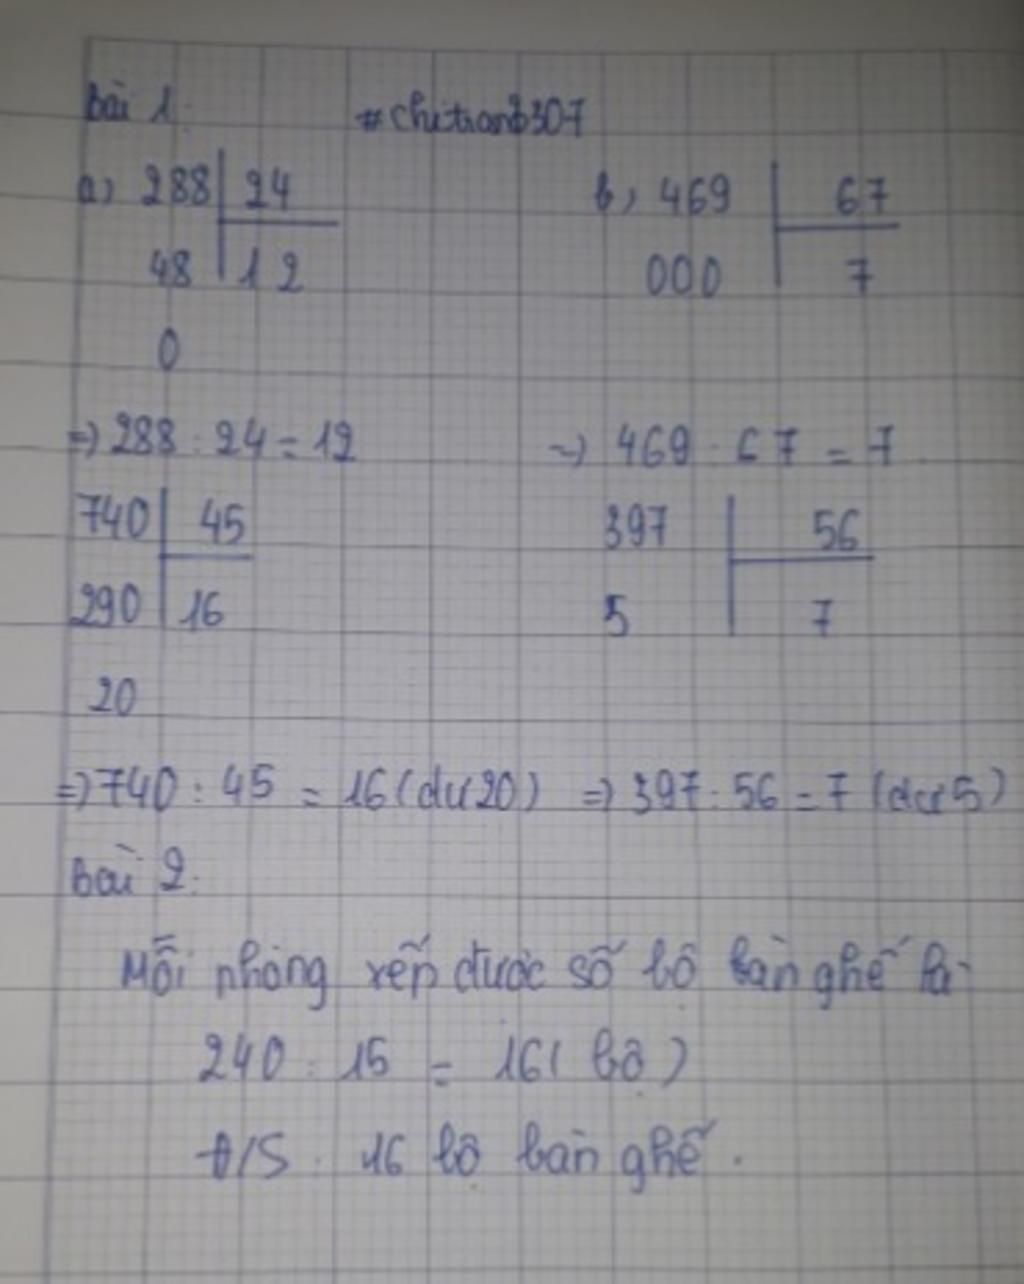 Bài 1: #chitranb307
a, 288 24 b, 469 67
48 12 000 7
0
=> 288 : 24 = 12 => 469 : 67 = 7
740 45 397 56
290 16 5 7
20
=> 740 : 45 = 16 (dư 20) => 397 : 56 = 7 (dư 5)
Bài 2:
Mỗi phòng xếp được số bộ bàn ghế là:
240 : 15 = 16 ( bộ )
Đ/S : 16 bộ bàn ghế .